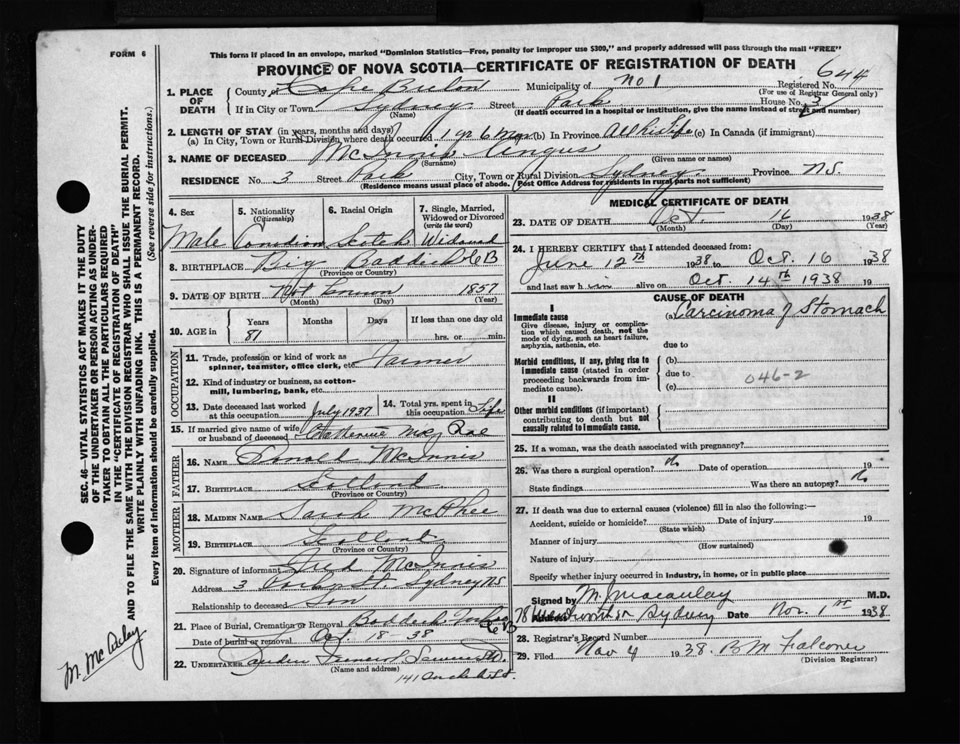 FORM 6
This form if placed in an envelope, marked "Dominion Statistics—Free, penalty for improper use $300," and properly addressed will pass through the mail "FREE"
PROVINCE OF NOVA SCOTIA—CERTIFICATE OF REGISTRATION OF DEATH
Registered No. 644
(For use of Registrar General only)
1. PLACE OF DEATH
County of Cape Breton Municipality of No 1
If in City or Town Sydney Street Park House No. 3
(Name) (If death occurred in a hospital or institution, give the name instead of street and number)
2. LENGTH OF STAY (in years, months and days)
(a) In City, Town or Rural Division where death occurred 1 yr 6 mon (b) In Province All his life (c) In Canada (if immigrant)
3. NAME OF DECEASED McInnis Angus
(Surname) (Given name or names)
RESIDENCE No. 3 Street Park City, Town or Rural Division Sydney Province N.S.
(Residence means usual place of abode. Post Office Address for residents in rural parts not sufficient)
4. Sex
Male
5. Nationality
(Citizenship)
Canadian
6. Racial Origin
Scotch
7. Single, Married, Widowed or Divorced
(write the word)
Widowed
8. BIRTHPLACE Big Baddeck CB
(Province or Country)
9. DATE OF BIRTH Not known 1857
(Month) (Day) (Year)
10. AGE in
Years Months Days If less than one day
81 hrs. or min.
OCCUPATION
11. Trade, profession or kind of work as spinner, teamster, office clerk, etc. Farmer
12. Kind of industry or business, as cotton-mill, lumbering, bank, etc.
13. Date deceased last worked at this occupation July 1937
14. Total yrs. spent in this occupation Life
15. If married give name of wife or husband of deceased Catherine McRae
FATHER
16. NAME Donald McInnis
17. BIRTHPLACE Scotland
(Province or Country)
MOTHER
18. MAIDEN NAME Sarah McPhee
19. BIRTHPLACE Scotland
(Province or Country)
20. Signature of informant McInnis
Address 3 Park St. Sydney NS
Relationship to deceased Son
21. Place of Burial, Cremation or Removal Baddeck CB
Date of burial or removal Oct 18-38
22. UNDERTAKER Funeral
(Name and address)
141
MEDICAL CERTIFICATE OF DEATH
23. DATE OF DEATH Oct. 16 1938
(Month) (Day) (Year)
24. I HEREBY CERTIFY that I attended deceased from:
June 12th 1938 to Oct. 16 1938
and last saw him alive on Oct. 14th 1938 19
CAUSE OF DEATH
I
Immediate cause (a) Carcinoma of Stomach
Give disease, injury or complication which caused death, not the mode of dying, such as heart failure, asphyxia, asthenia, etc.
due to
Morbid conditions, if any, giving rise to immediate cause (stated in order proceeding backwards from immediate cause).
(b)
due to
(c)
046-2
II
Other morbid conditions (if important) contributing to death but not causally related to immediate cause.
25. If a woman, was the death associated with pregnancy?
26. Was there a surgical operation? No Date of operation 19
State findings Was there an autopsy? No
27. If death was due to external causes (violence) fill in also the following:—
Accident, suicide or homicide? Date of injury 19
(State which)
Manner of injury
(How sustained)
Nature of injury
Specify whether injury occurred in industry, in home, or in public place
Signed by M. Macaulay M.D.
78 Wentworth Sydney Date Nov. 1st 1938
28. Registrar's Record Number
29. Filed Nov 4 1938. B M Falconer
(Division Registrar)
SEC. 46—VITAL STATISTICS ACT MAKES IT THE DUTY
OF THE UNDERTAKER OR PERSON ACTING AS UNDER-
TAKER TO OBTAIN ALL THE PARTICULARS REQUIRED
IN THE "CERTIFICATE OF REGISTRATION OF DEATH"
AND TO FILE THE SAME WITH THE DIVISION REGISTRAR WHO SHALL ISSUE THE BURIAL PERMIT.
WRITE PLAINLY WITH UNFADING INK. THIS IS A PERMANENT RECORD.
Every item of information should be carefully supplied. (See reverse side for instructions.)
M. McAuley